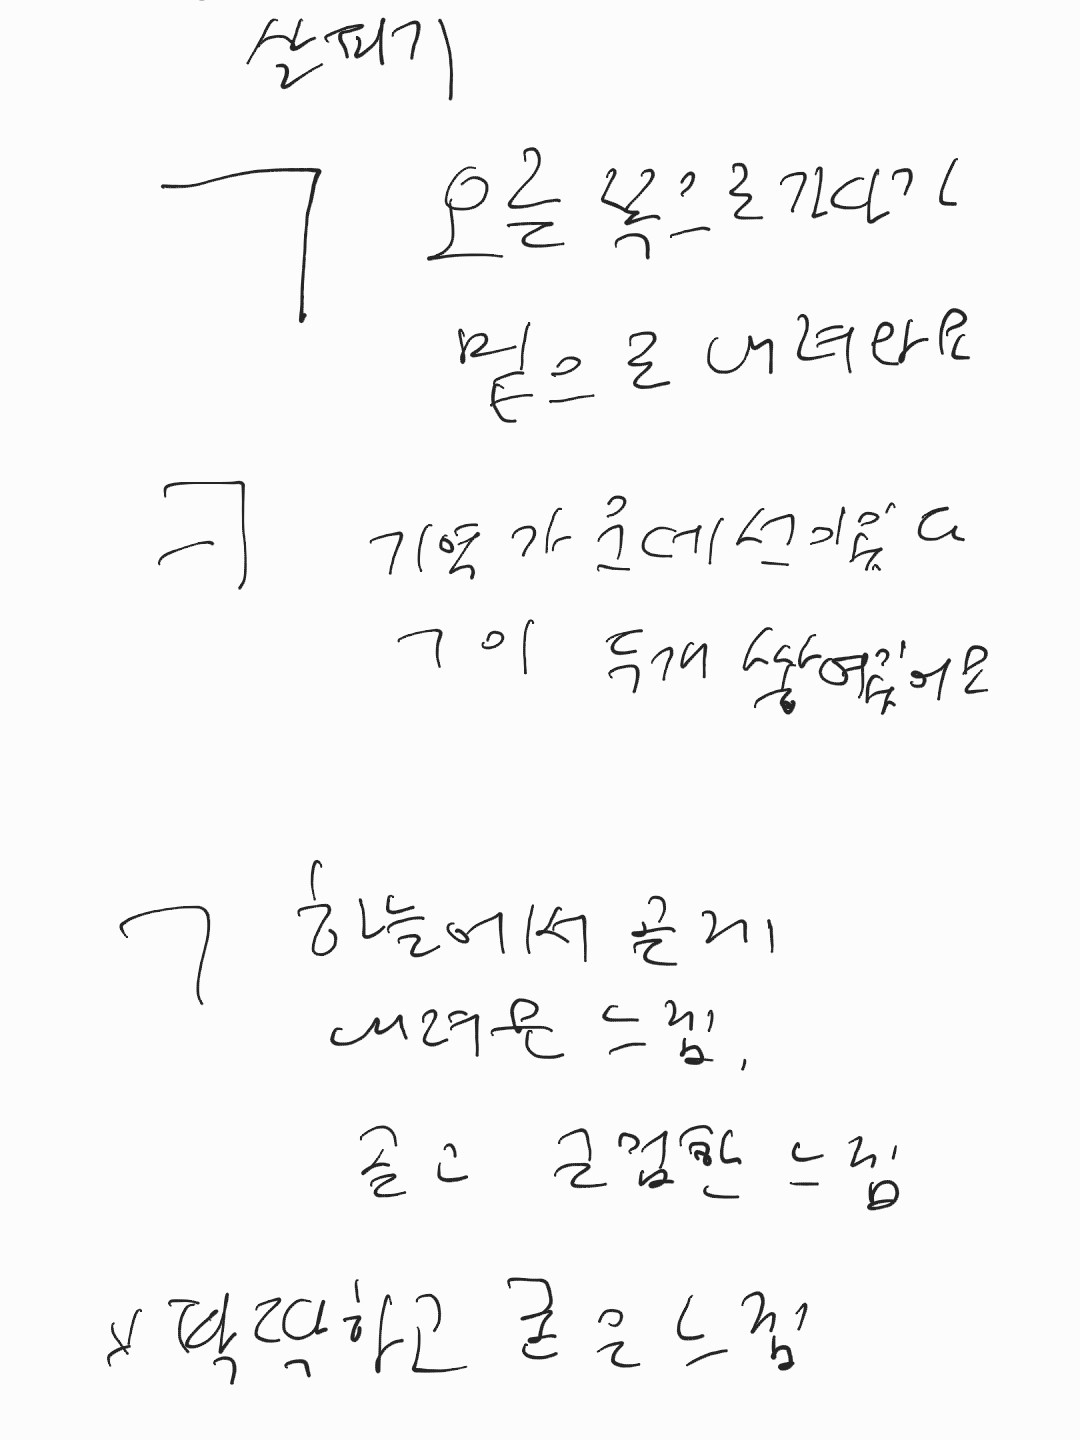 살피기
ㄱ 오른 쪽으로 가다가
밑으로 내려와요
ㅋ 기역 가운데 선이 있다
ㄱ이 두개 쌓여있어요
ㄱ 하늘에서 곧게
내려온 느낌,
곧고 근엄한 느낌
딱딱하고 굳은 느낌